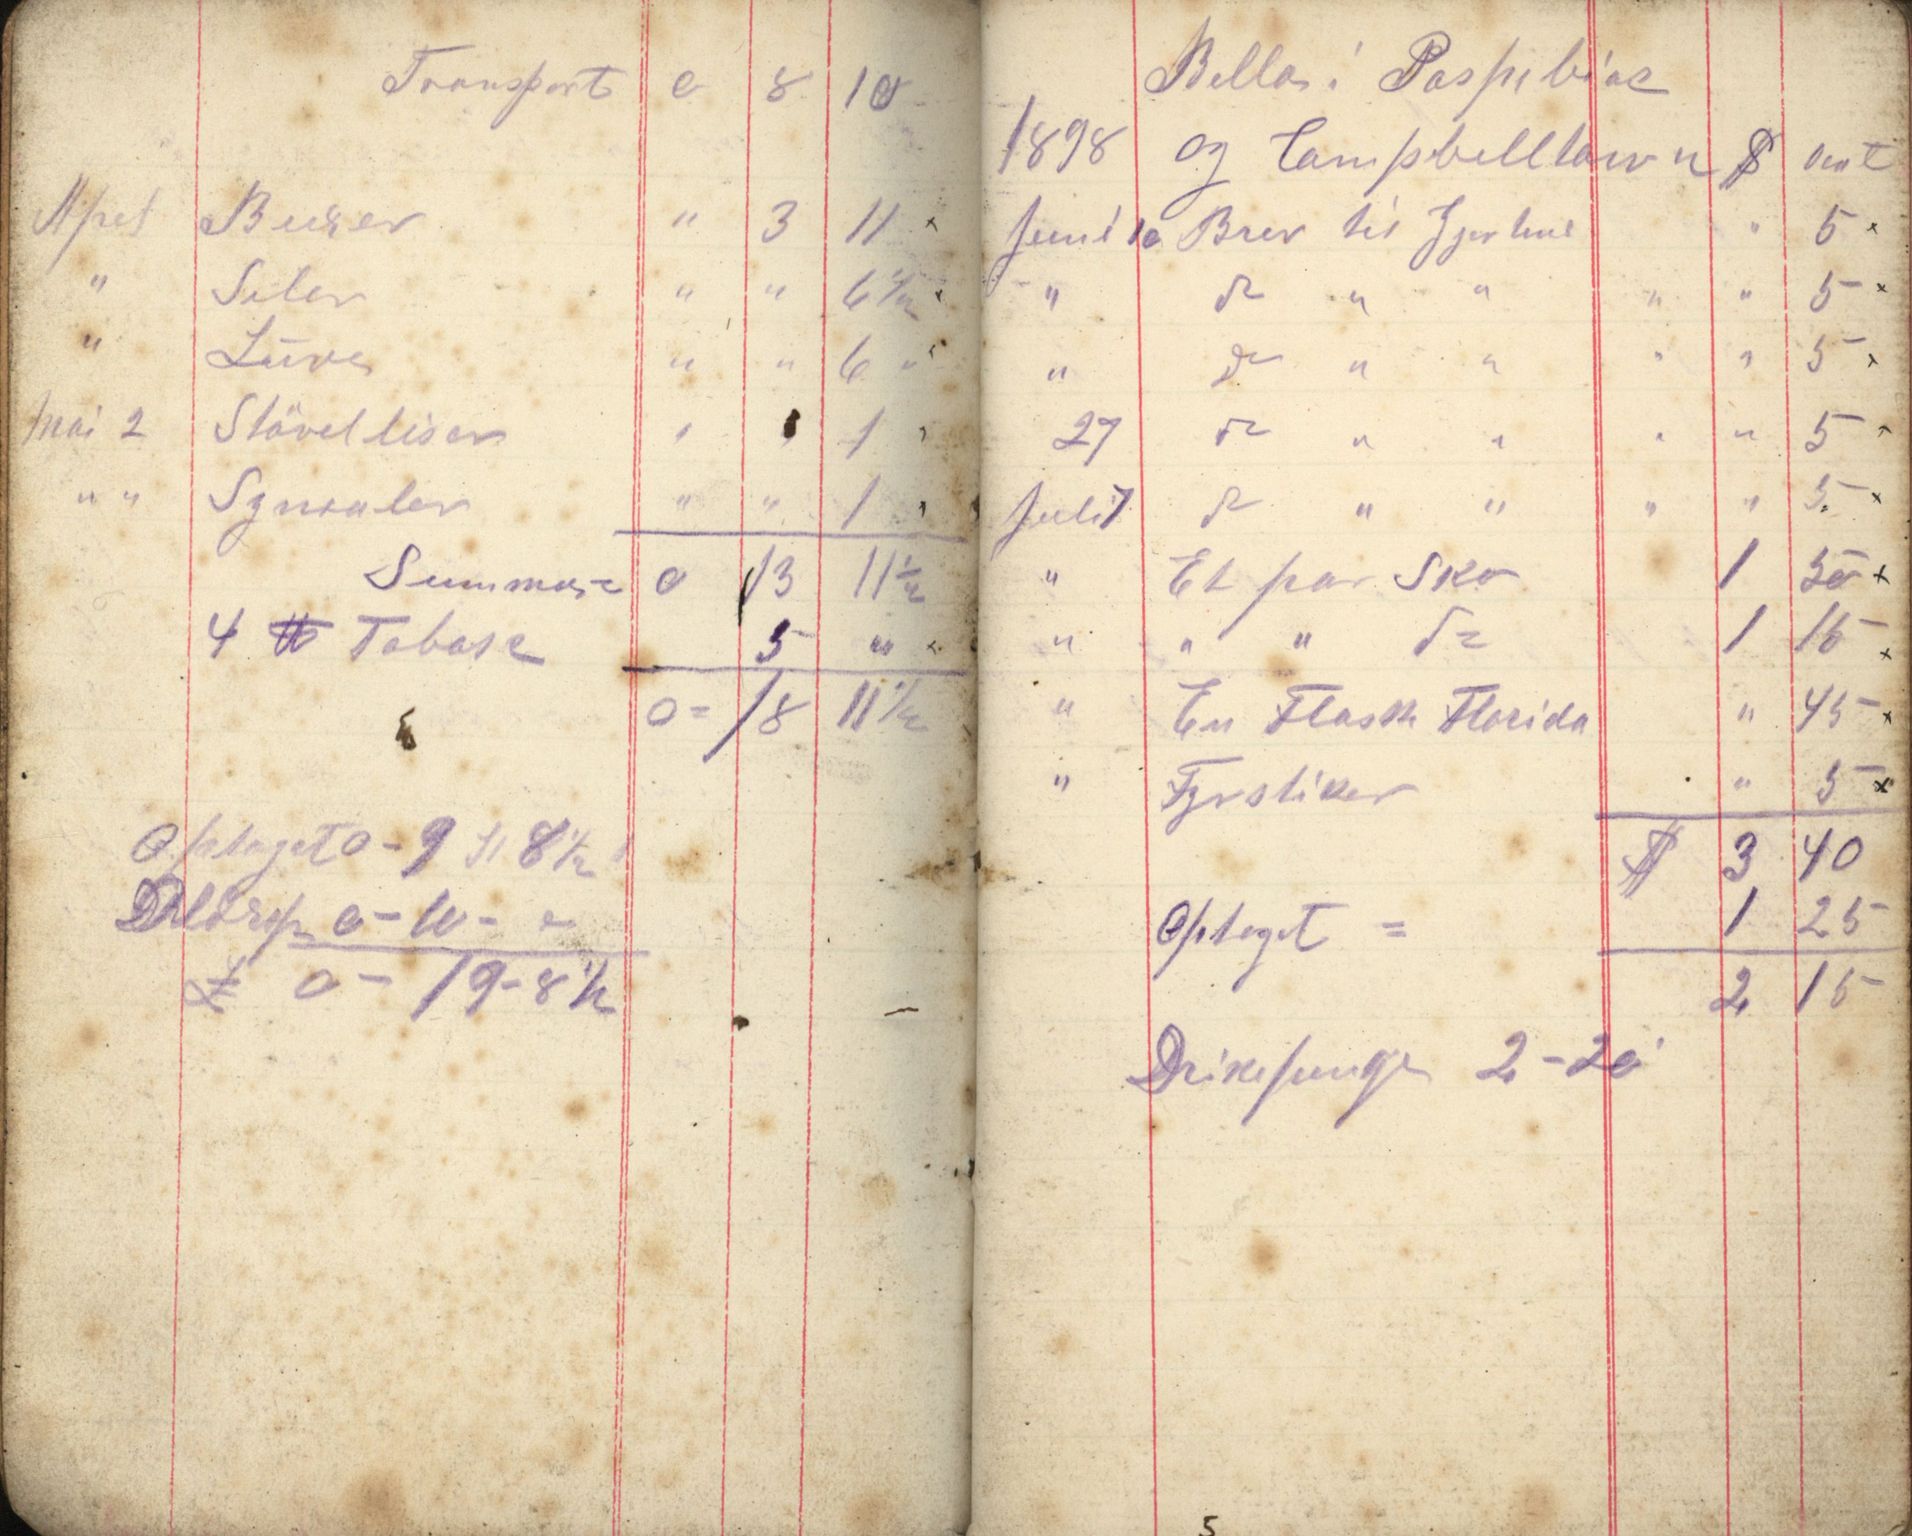 Transport 0 8 10
Aprel Buxer " 3 11 x
" Seler " " 6 1/2 x
" Lüve " " 6 "
Mai 2 Stövelliser " " 1 "
" " Synaaler " " 1 "
Summa 0 13 11 1/2
4 ℔ Tabak 5 " x
0 = 18 11 1/2
Optaget 0 - 9 8 1/2
0 - 10 - 0
£ 0 - 19 - 8 1/2
Bella i Paspebiac
1898 og Campbelltown $ cent
Juni 10 Brev til Hjemme " 5 x
" do " " " " 5 x
" do " " " " 5 x
27 do " " " " 5 x
Juli 7 do " " " " 5 x
" Et par Sko 1 50 x
" " " do 1 15 x
" En Flask Florida " 45 x
" Fyrstiker " 5 x
$ 3 40
Optaget = 1 25
2 15
Drikepenge 2 - 20
5